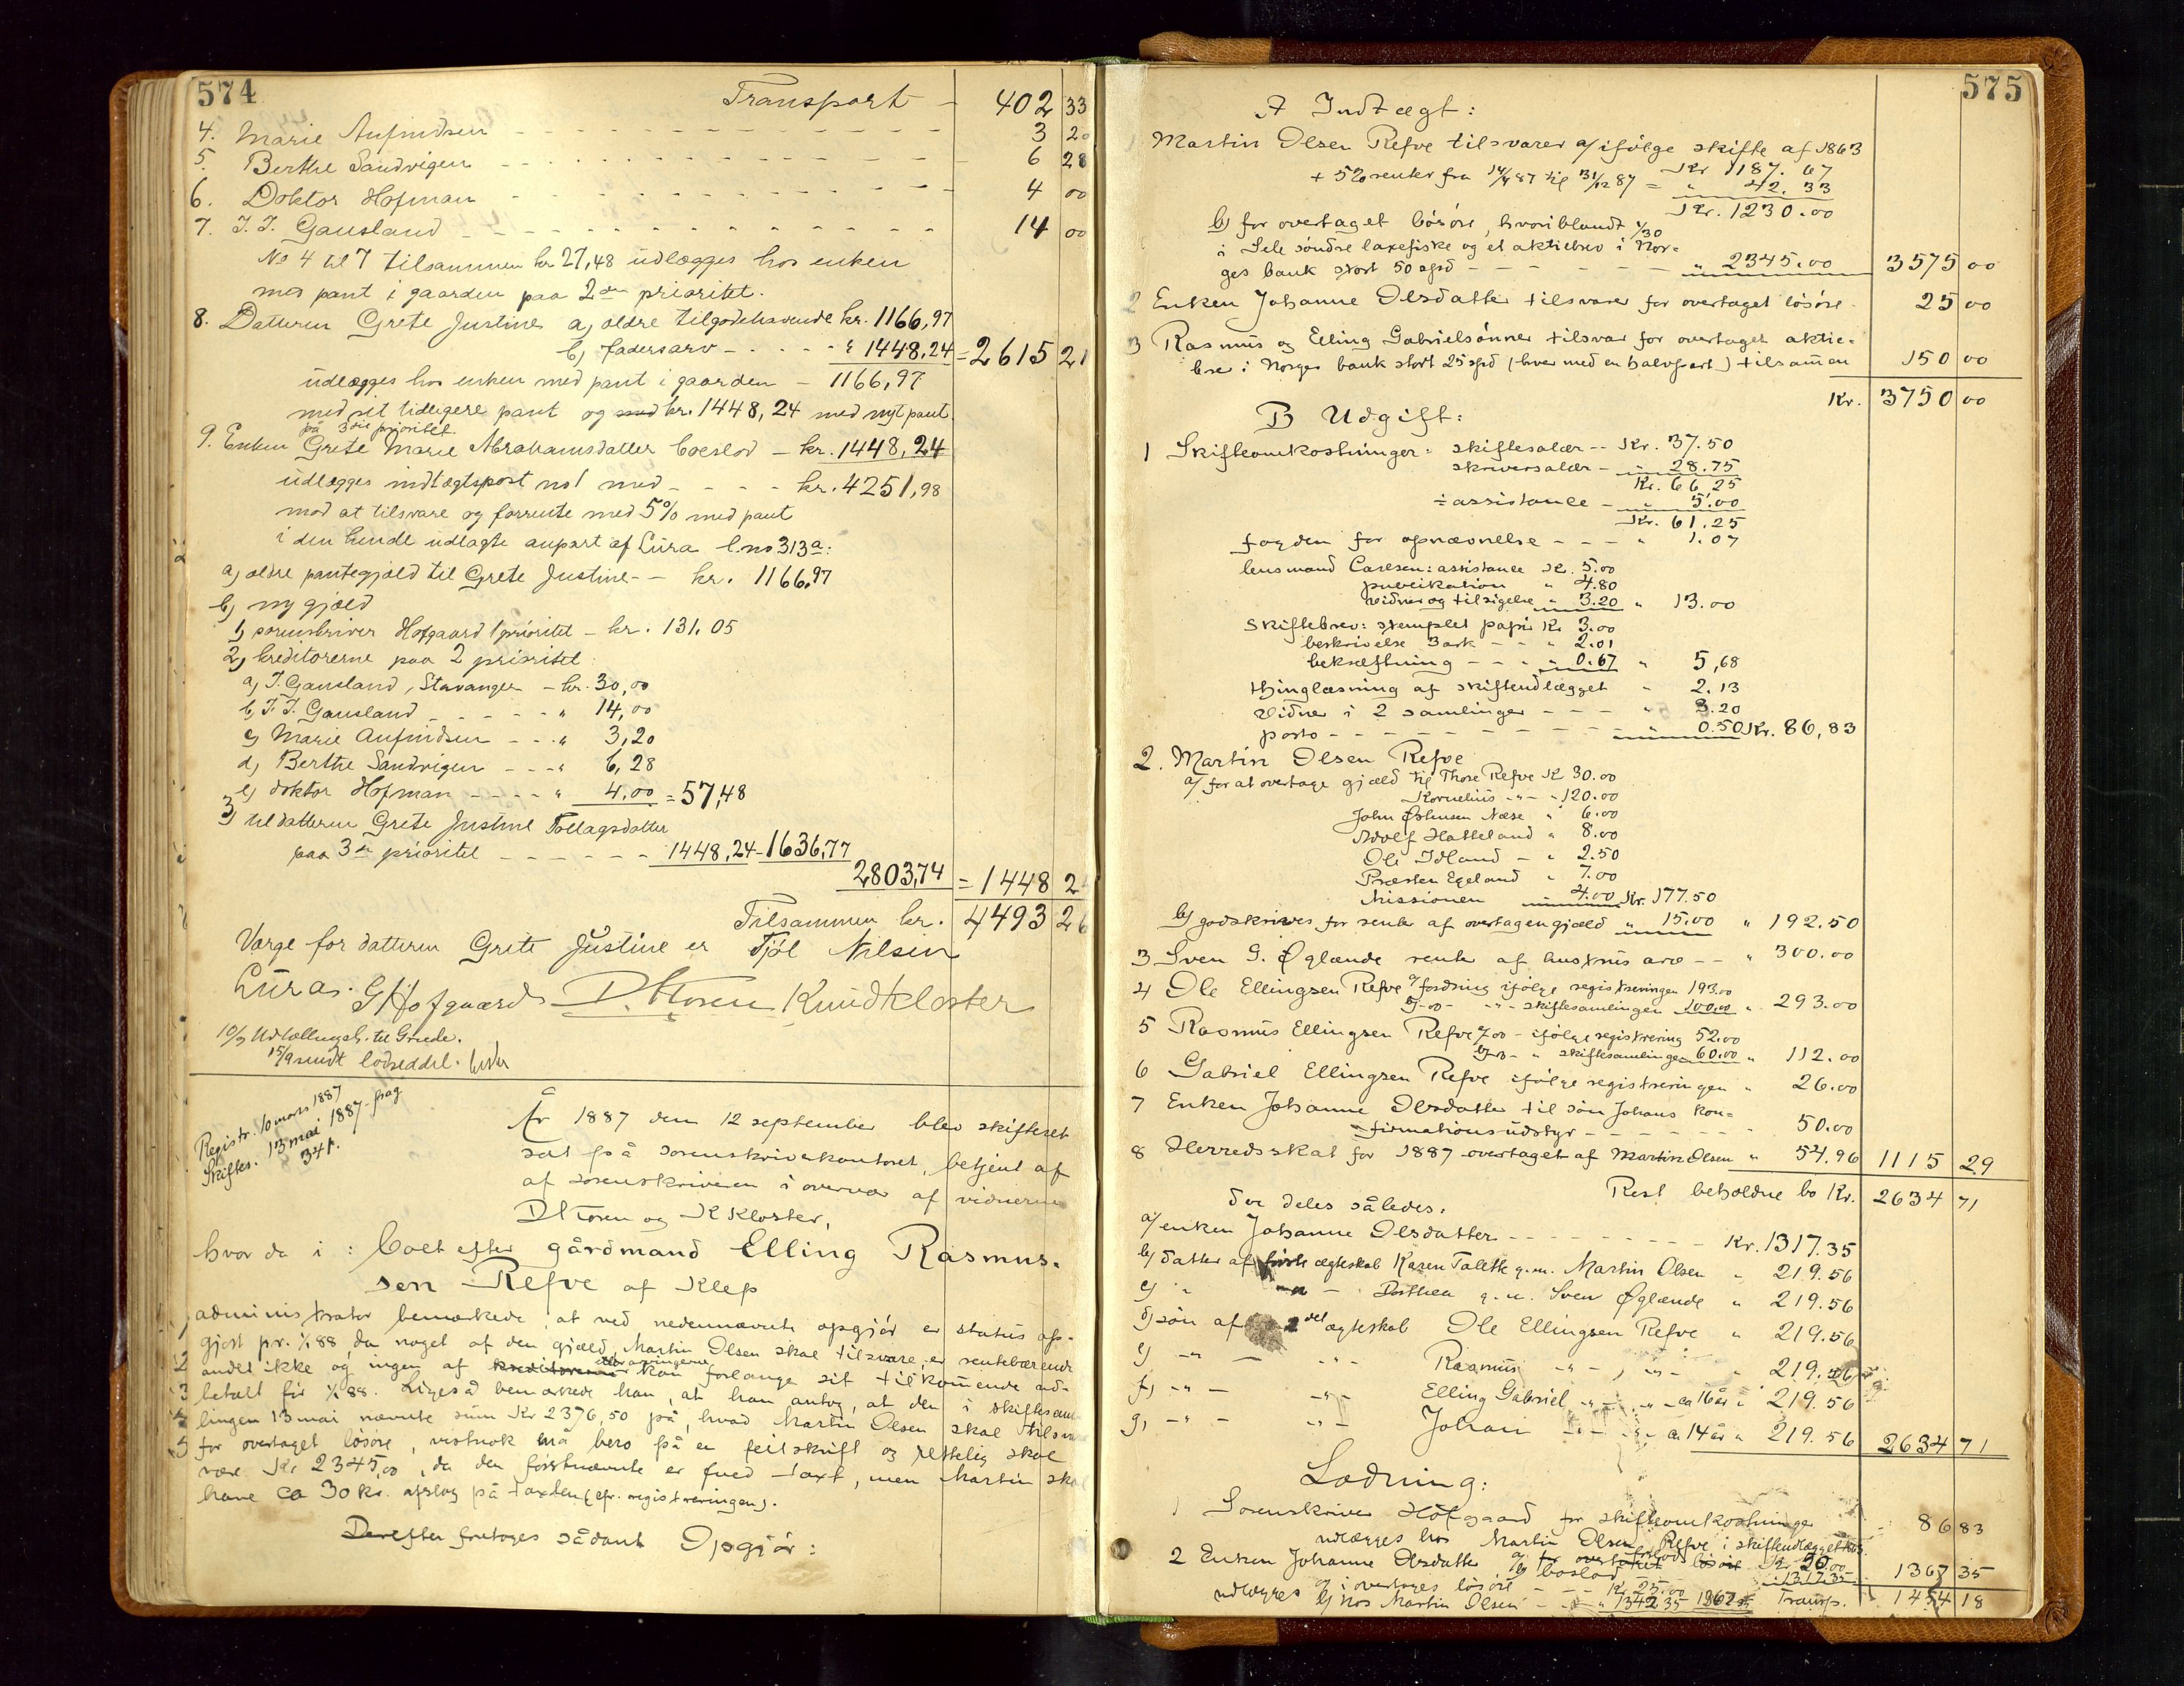 574
Transport - 402 33
4. Marie Anfindsen - - - 3 20
5. Berthe Sandvigen - - - 6 28
6. Doktor Hofman - - - 4 00
7. T. T. Gausland - - - 14 00
No 4 til 7 tilsammen kr 27,48 udlægges hos enken
mod pant i gaarden paa 2den prioritet.
8. Datteren Grete Justine a) ældre tilgodehavende kr. 1166,97
b) fadersarv - - - " 1448,24 = 2615 21
udlægges hos enken med pant i gaarden - 1166,97
med sit tidligere pant og med kr. 1448,24 med nyt pant
på 3die prioritet.
9. Enken Grete Marie Abrahamsdatter boeslod - kr. 1448,24
udlægges indtægtspost no 1 med - - - kr. 4251,98
mod at tilsvare og forrente med 5% med pant
i den hende udlagte anpart af Lura l.no 313a:
a) ældre pantegjæld til Grete Justine - - kr. 1166,97
b) ny gjæld
1) sorenskriver Hofgaard 1 prioritet - kr. 131.05
2) kreditorerne paa 2 prioritet:
a) T. Gausland, Stavanger - kr. 30,00
b) T. T. Gausland - - - " 14,00
c) Marie Anfindsen - - - " 3,20
d) Berthe Sandvigen - - - " 6,28
e) doktor Hofman - - - - " 4,00 = 57,48
3) til datteren Grete Justine Tollagsdatter
paa 3die prioritet - - - - - - 1448,24 - 1636,77
2803,74 = 1448 24
Tilsammen kr. 4493 26
Værge for datteren Grete Justine er Tjøl Nilsen
Lura. G Hofgaard D. Thoren Knud Kloster
10/9 Udtællingsb. til Grude.
15/9 sendt lodseddel.
Registr. 10 mars 1887
Skiftes. 13 mai 1887 - pag
341.
År 1887 den 12 september blev skifteret
sat på sorenskriverkontoret, betjent af
af sorenskriveren i overvær af vidnerne
D Thoren og K Kloster,
hvor da i: boet efter gårdmand Elling Rasmus-
sen Refve af Klep
1 administrator bemærkede, at ved nedennævnte opgjør er status op-
gjort pr. 1/1 88, da noget af den gjæld, Martin Olsen skal tilsvare, er rentebærende
2 andet ikke og ingen af kreditorerne arvingerne kan forlange sit tilkommende ud-
3 betalt før 1/1 88. Ligeså bemærkede han, at han antog, at den i skiftesam-
4 lingen 13 mai nævnte sum Kr 2376,50 på, hvad Martin Olsen skal tilsvare
5 for overtaget løsøre, vistnok må bero på en feilskrift og rettelig skal
være Kr 2345,00, da den førstnævnte er fuld taxt, men Martin skal
have ca 30 kr. afslag på taxten (cfr. registreringen).
Derefter foretoges sådant Opgjør:
575
A Indtægt:
1 Martin Olsen Refve tilsvarer a) ifølge skifte af 1863
Kr 1187.67
+ 5% renter fra 14/4 87 til 31/12 87 = " 42.33
Kr. 1230.00
b) for overtaget løsøre, hvoriblandt 1/30
i Sele søndre laxefiske og et aktiebrev i Nor-
ges bank stort 50 spd - - - - " 2345.00 3575 00
2 Enken Johanne Olsdatter tilsvarer for overtaget løsøre - 25 00
3 Rasmus og Elling Gabrielsønner tilsvar for overtaget aktie-
brev i Norges bank stort 25 spd (hver med en halvpart) tilsammen 150 00
Kr. 3750 00
B Udgift:
1 Skifteomkostninger: skiftesalær - - Kr. 37.50
skriversalær - " 28.75
Kr. 66.25
÷ assistance - " 5.00
Kr. 61.25
fogden for opnævnelse - - - " 1.07
lensmand Carlsen: assistance Kr. 5.00
publikation " 4.80
vidner og tilsigelse " 3.20 " 13.00
Skiftebrev: stemplet papir Kr 3.00
beskrivelse 3 ark - - " 2.01
bekræftning - - - " 0.67 " 5,68
thinglæsning af skifteudlægget " 2.13
vidner i 2 samlinger - - - " 3.20
porto - - - - - " 0.50 Kr. 86,83
2. Martin Olsen Refve
a) for at overtage gjæld til Thore Refve Kr 30.00
Kornelius - " - " 120.00
John Østensen Næse " 6.00
Adolf Hatteland " 8.00
Ole Idland - " 2.50
Præsten Egeland " 7.00
Missionen " 4.00 Kr. 177.50
b) godskrives for rente af overtagen gjæld " 15.00 " 192.50
3 Sven G. Øglænde rente af hustrus arv - - " 300.00
4 Ole Ellingsen Refve a) fordring ifølge registreringen 193.00
b) - " - " - skiftesamlingen 100.00 " 293.00
5 Rasmus Ellingsen Refve a) - " - ifølge registrering 52.00
b) - " - " skiftesamlingen 60.00 " 112.00
6 Gabriel Ellingsen Refve ifølge registreringen " 26.00
7 Enken Johanne Olsdatter til søn Johans kon-
firmationsudstyr - - - - - - " 50.00
8 Herredsskat for 1887 overtaget af Martin Olsen " 54.96 1115 29
Rest beholdne bo Kr. 2634 71
der deles således:
a) enken Johanne Olsdatter - - - - - Kr. 1317.35
b) datter af første ægteskab Karen Talette g.m. Martin Olsen " 219.56
c) " - " - Dorthea g.m. Sven Øglænde " 219.56
d) søn af 2det ægteskab Ole Ellingsen Refve " 219.56
e) - " - - " - Rasmus - " - , - " - " 219.56
f) - " - - " - Elling Gabriel - " - , - " - ca 16 år " 219.56
g) - " - - " - Johan - " - - " - ca 14 år " 219.56 2634 71
Lodning:
1 Sorenskriver Hofgaard for skifteomkostninger - 86 83
udlægges hos Martin Olsen Refve i skifteudlægget
2 Enken Johanne Olsdatter a) for overtaget løsøre Kr 50.00
b) boslod " 1317.35 1367 35
udlægges a) i overtaget løsøre - - - Kr 25.00
b) hos Martin Olsen - - " 1342.35 1367 35 Transp. 1454 18